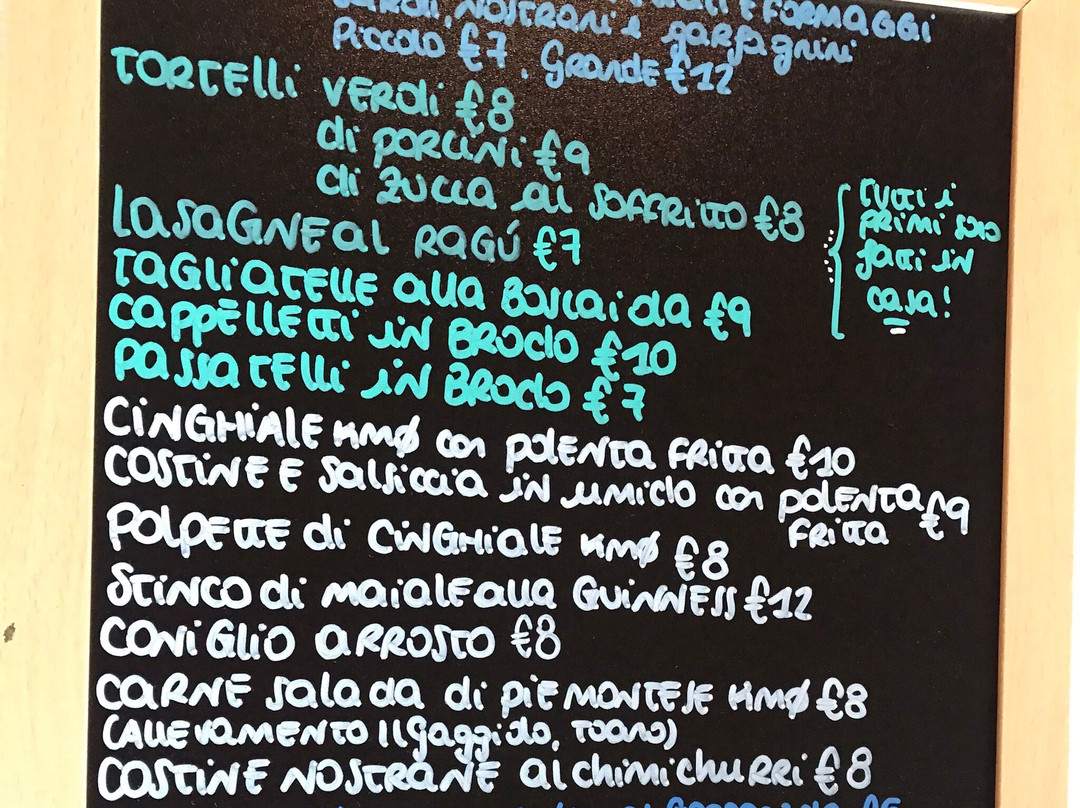 NOSTRANI E garfagnini
E FORMAGGI
Piccolo €7, Grande €12
TORTELLI VERDI €8
di PORCINI €9
di ZUCCA al SOFFRITTO €8
LASAGNE al RAGÚ €7
TAGLIATELLE alla BOSCAIOLA €9
CAPPELLETTI iN BRODO €10
PASSATELLI iN BRODO €7
TUTTI i
PRIMI SONO
fatti iN
casa!
CiNGHiALE KMØ con POLENTA FRITTA €10
COSTINE E Salsiccia iN UMIDO con POLENTA €9
FRITTA
POLPETTE di CiNGHiALE KMØ €8
STINCO di MAIALE alla GUINNESS €12
CONiGLiO ARROSTO €8
CARNE Salada di PIEMONTESE KMØ €8
(ALLEVAMENTO Il Gaggiolo, TOANO)
COSTINE NOSTRANE al chimichuRRi €8